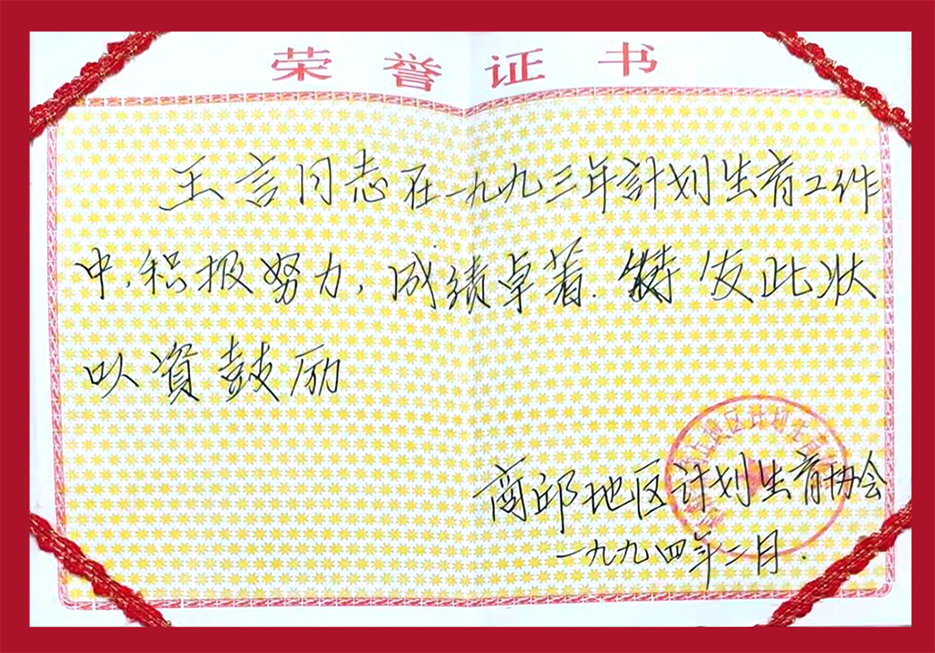 荣誉证书
王言同志在一九九三年計划生育工作
中,积极努力,成绩卓著.特发此状
以資鼓励
商邱地区计划生育协会
一九九四年二月.